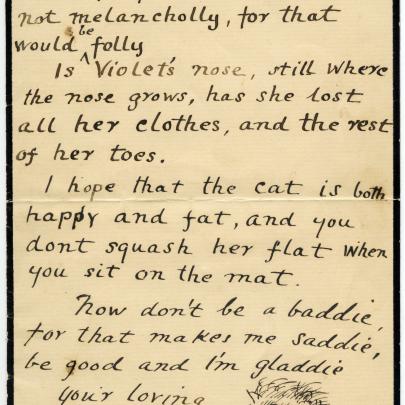 not melancholly, for that
would be folly
Is Violet's nose, still where
the nose grows, has she lost
all her clothes, and the rest
of her toes.
I hope that the cat is both
happy and fat, and you
dont squash her flat when
you sit on the mat.
Now don't be a baddie,
for that makes me saddie,
be good and I'm gladdie
your loving